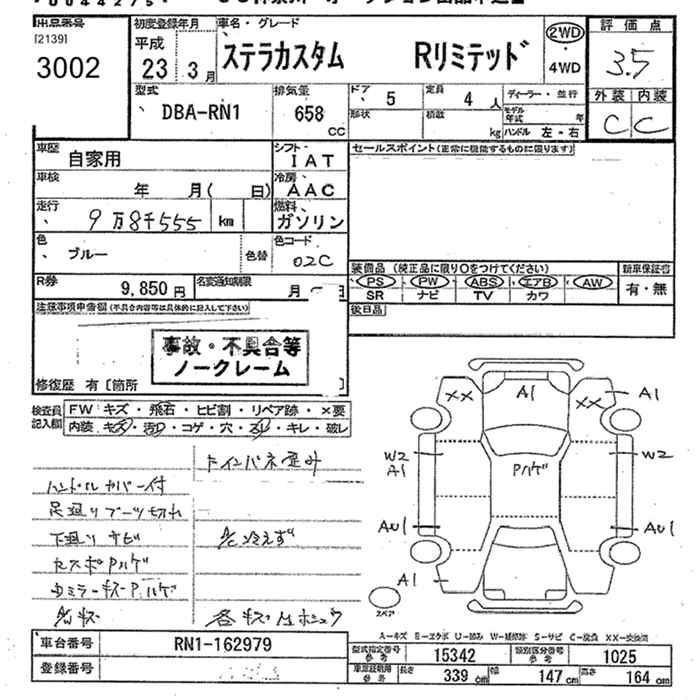 出品番号 [2139] 3002
初度登録年月 平成 23 3月
車名・グレード ステラカスタム Rリミテッド
2WD ・ 4WD
評価点 3.5
外装 内装 C C
型式 DBA-RN1
排気量 658 CC
ドア 5
定員 4人
ディーラー・並行
形状
積載 kg
モデル年式 年
ハンドル 左・右
車歴 自家用
シフト IAT
車検 年 月( 日)
冷房 AAC
走行 9万8千555 km
燃料 ガソリン
色 ブルー 色替
色コード 02C
R券 9,850円
名変通知期限 月
セールスポイント(正常に機能するものに限ります)
装備品(純正品に限り○をつけてください)
PS・PW・ABS・エアB・AW
SR ナビ TV カワ
新車保証書 有・無
後日品
注意事項申告欄(不具合内容等は具体的に記入して下さい)
事故・不具合等
ノークレーム
修復歴 有〔箇所 〕
検査員記入欄
FW キズ・飛石・ヒビ割・リペア跡・×要
内装 キズ・汚れ・コゲ・穴・ズレ・キレ・破レ
ハンドルカバー付
足廻りブーツ切れ
下廻りサビ
A/C冷えず
A1
XX
XX
A1
W2
A1
Pハゲ
W2
AU1
AU1
A1
スペア
A-キズ E-エクボ U-凹み W-補修跡 S-サビ C-腐食 XX-交換済
車台番号 RN1-162979
登録番号
型式指定番号 参考 15342
類別区分番号 参考 1025
車庫証明用 参考 長さ 339cm 幅 147cm 高さ 164cm